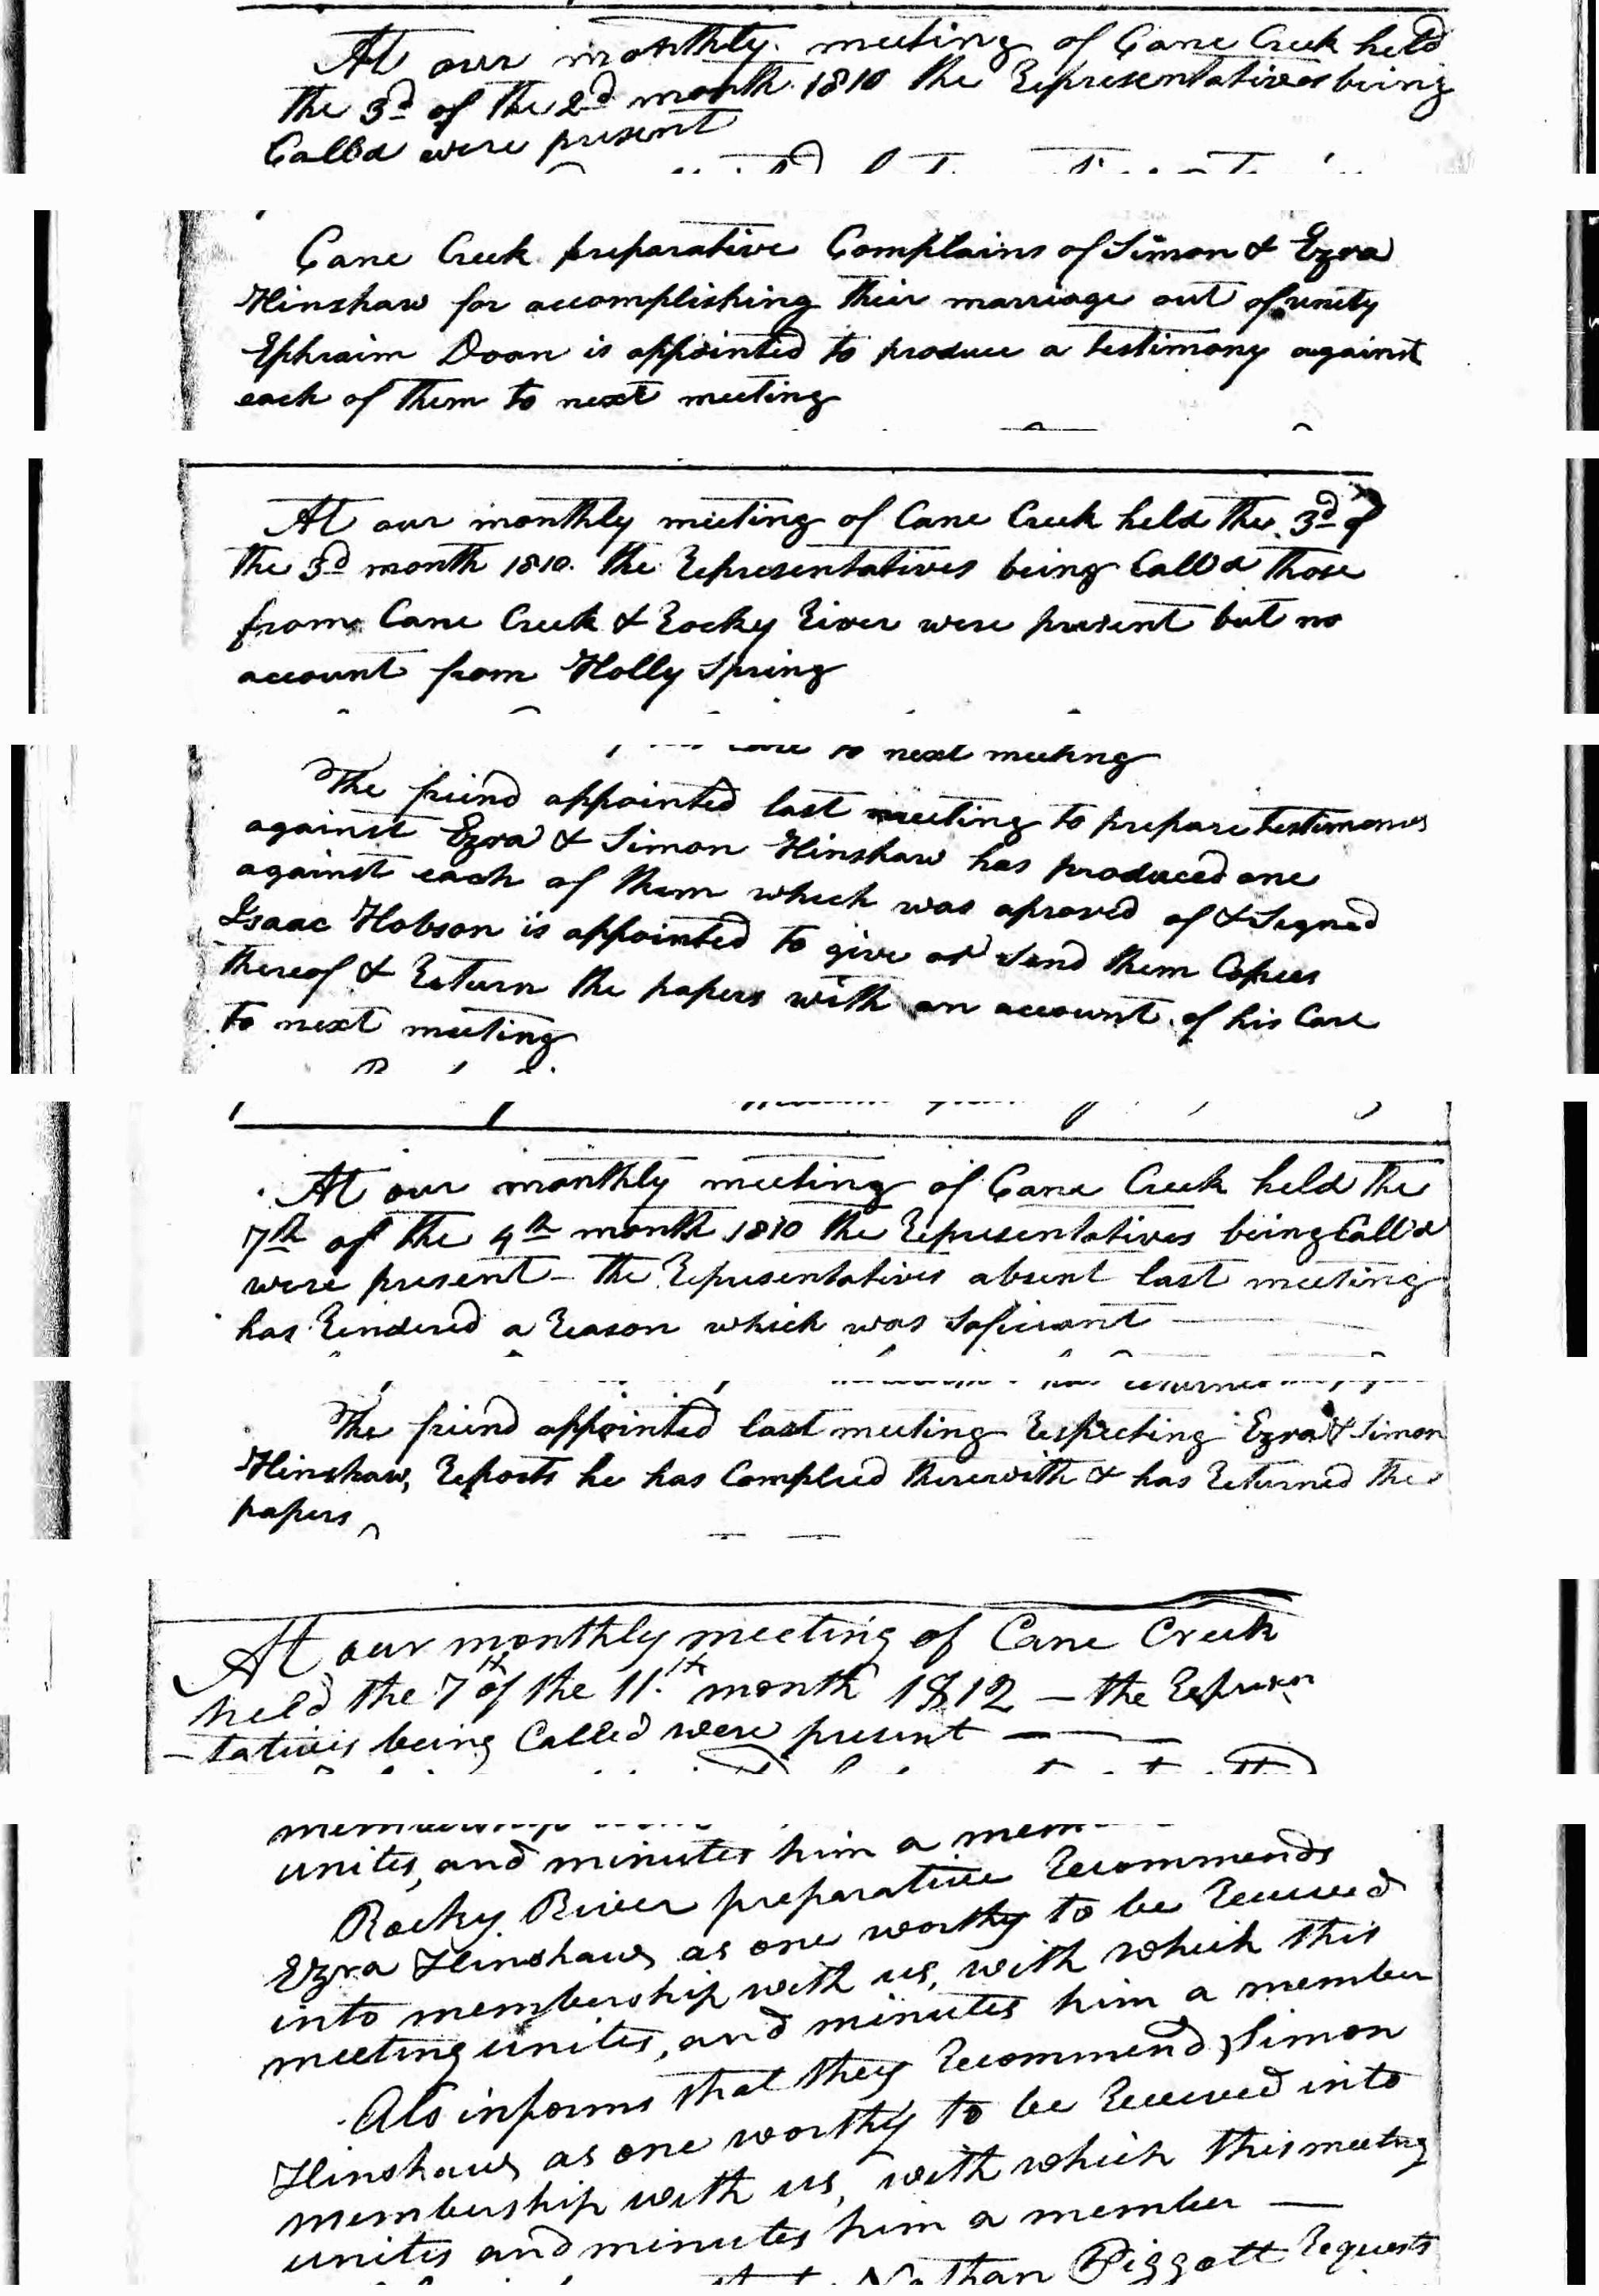 At our monthly meeting of Cane Creek held
the 3d of the 2d month 1810 the Representatives being
Calld were present
Cane Creek preparative Complains of Simon & Ezra
Hinshaw for accomplishing their marriage out of unity
Ephraim Doan is appointed to produce a testimony against
each of them to next meeting
At our monthly meeting of Cane Creek held the 3d of
the 3d month 1810. the Representatives being Call'd those
from Cane Creek & Rocky River were present but no
account from Holly Spring
to next meeting
The friend appointed last meeting to prepare testimonies
against Ezra & Simon Hinshaw has produced one
against each of them which was aproved of & Signed
Isaac Hobson is appointed to give or Send them Copies
thereof & Return the papers with an account of his Care
to next meeting
At our monthly meeting of Cane Creek held the
7th of the 4th month 1810 the Representatives being Call'd
were present - the Representatives absent last meeting
has Rendered a Reason which was Soficiant
The friend appointed last meeting Respecting Ezra & Simon
Hinshaw, Reports he has Complied therewith & has Returned the
papers
At our monthly meeting of Cane Creek
held the 7th of the 11th month 1812 — the Represen
-tatives being Called were present — —
unites, and minutes him a
Rocky River preparative Recommends
Ezra Hinshaw as one worthy to be Received
into membership with us, with which this
meeting unites, and minutes him a member
Also informs that they Recommend Simon
Hinshaw as one worthy to be Received into
membership with us, with which this meeting
unites and minutes him a member —
Nathan Piggott Requests